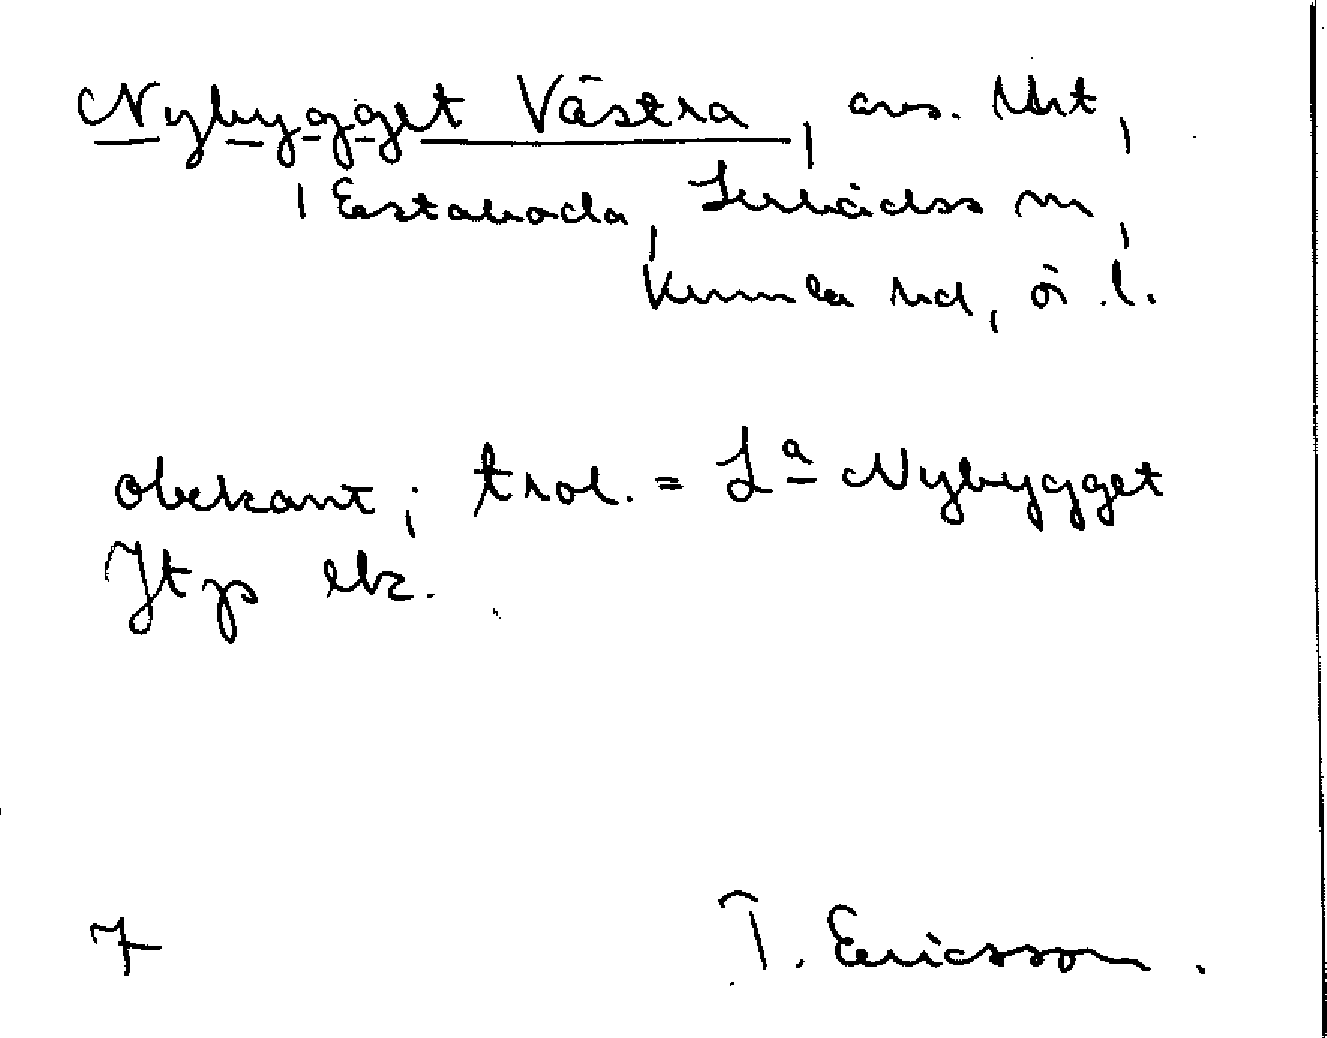 Nybygget Västra, avs. Urt,
i Estaboda, Lerbäcks sn,
Kumla hd, ö.l.
obekant; trol. = La Nybygget
Jtp etc.
7
T. Ericsson.